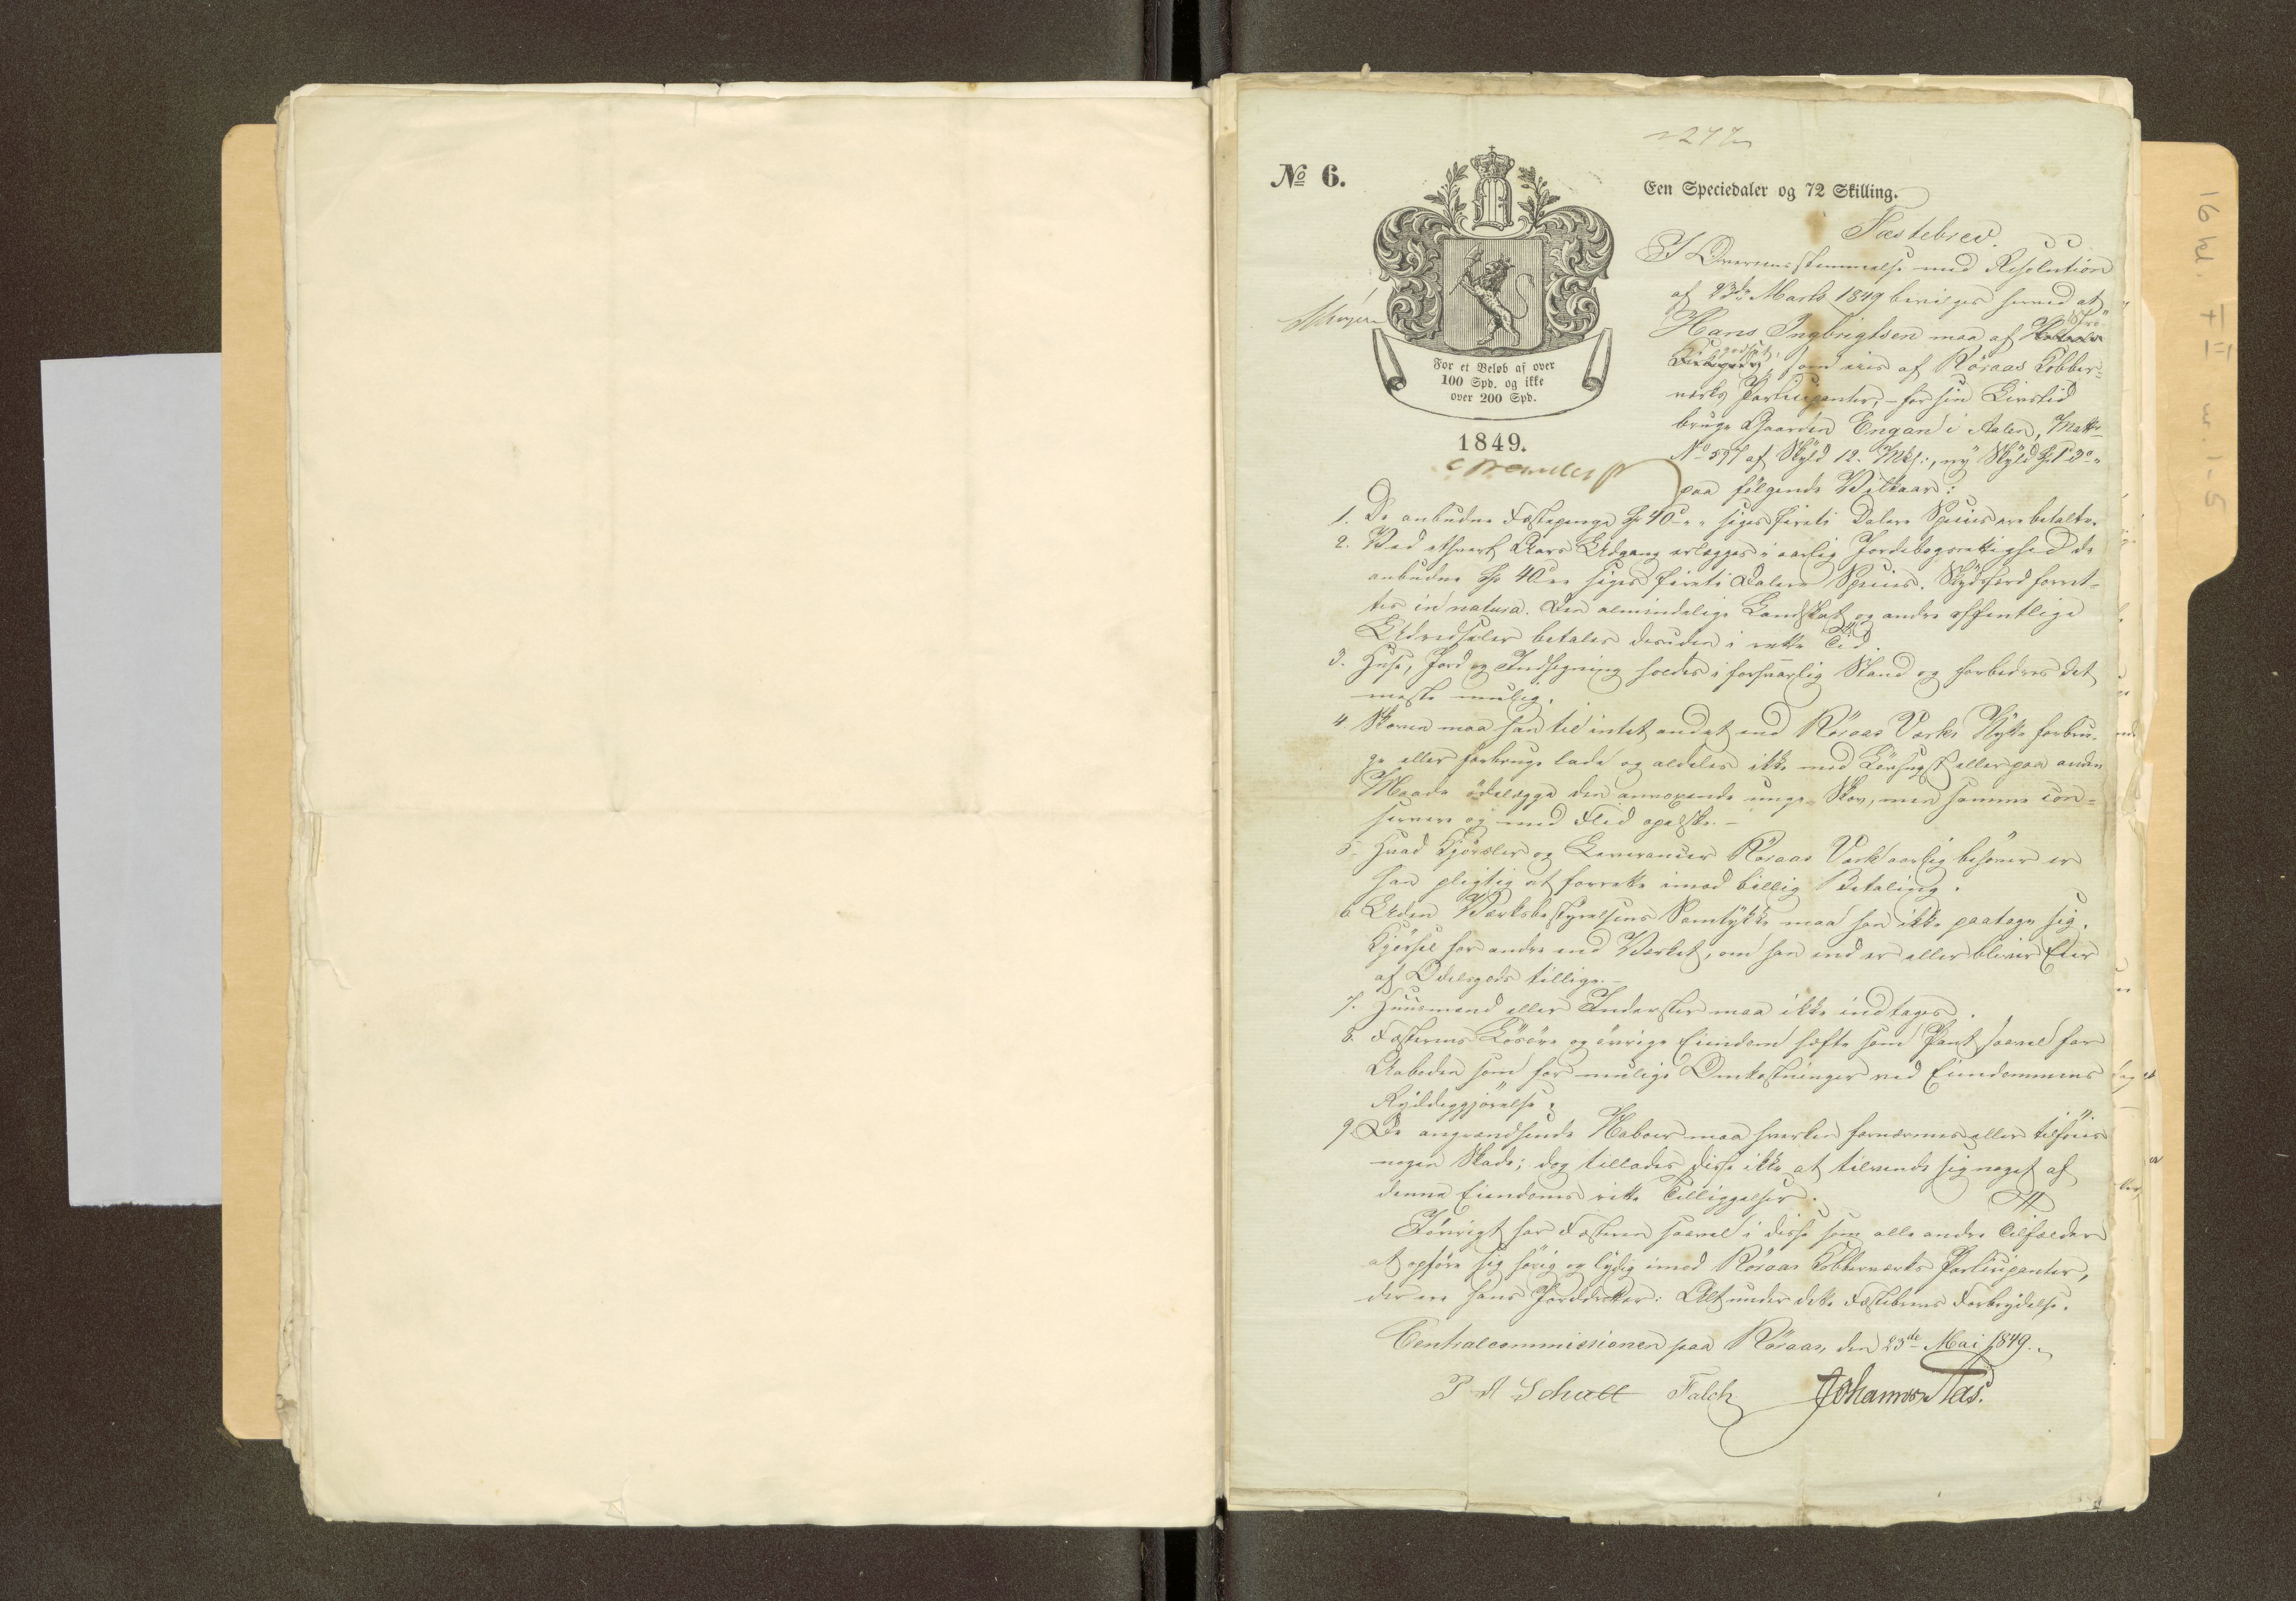 277
№ 6.
Een Speciedaler og 72 Skilling.
For et Beløb af over
100 Spd. og ikke
over 200 Spd.
1849.
Fæstebrev.
I Overeensstemmelse med Resolution
af 23de Marts 1849 bevilges herved at
Hans Ingbrigtsen maa af
godset, som eies af Röraas Kobber-
værks Participanter, - for sin Livstid
bruge Gaarden Engan i Aalen, Matr.
No 597 af Skyld 12 Mkl:, ny Skyld
paa følgende Vilkaar:
1. De anbudne Fæstepenge Sp 40 - " siges fireti Daler Species ere betalte.
2. Ved ethvert Aars Udgang erlægges i aarlig Jordebogsrettighed de
anbudne Sp 40 siges fireti Daler Species. Skydsfærd forret-
tes in natura. Den almindelige Landskat og andre offentlige
Udredsler betales desuden i rette Tid.
3. Huse, Jord og Indhegning holdes i forsvarlig Stand og forbedres det
meste mulig.
4. Skoven maa han til intet andet end Röraas Værks Nytte forbru-
ge eller forbruge lade og aldeles ikke med Løvhugst eller paa anden
Maade ödelægge den anvoxende unge Skov, men samme con-
servere og med Flid opelske. -
5. Hvad Kjörsler og Leverancer Röraas Værk aarlig behöver er
han pligtig at forrette imod billig Betaling.
6 Uden Værksbestyrelsens Samtykke maa han ikke paatage sig
Kjørsel for andre end Værket, om han end er eller bliver Eier
af Odelsgods tillige. -
7. Huusmænd eller Inderster maa ikke indtages.
8. Fæsterens Lösöre og övrige Eiendom hæfte som Pant saavel for
Aaboden som for mulige Omkostninger ved Eiendommens
Ryddeggjörelse.
9. De angrændsende Naboer maa hverken fornærmes eller tilföies
nogen Skade; dog tillades disse ikke at tilvende sig noget af
denne Eiendoms rette Tilliggelser.
Iövrigt har Fæsteren saavel i disse som alle andre Tilfælder
at opföre sig hörig og lydig imod Röraas Kobberværks Participanter,
der ere hans Jorddrotter: Alt under dette Fæstebrevs Forbrydelse.
Centralcommissionen paa Röraas, den 23de Mai 1849.
P A Schult Falch Johannes Aas.
16 kl. 7 II m. 1-5